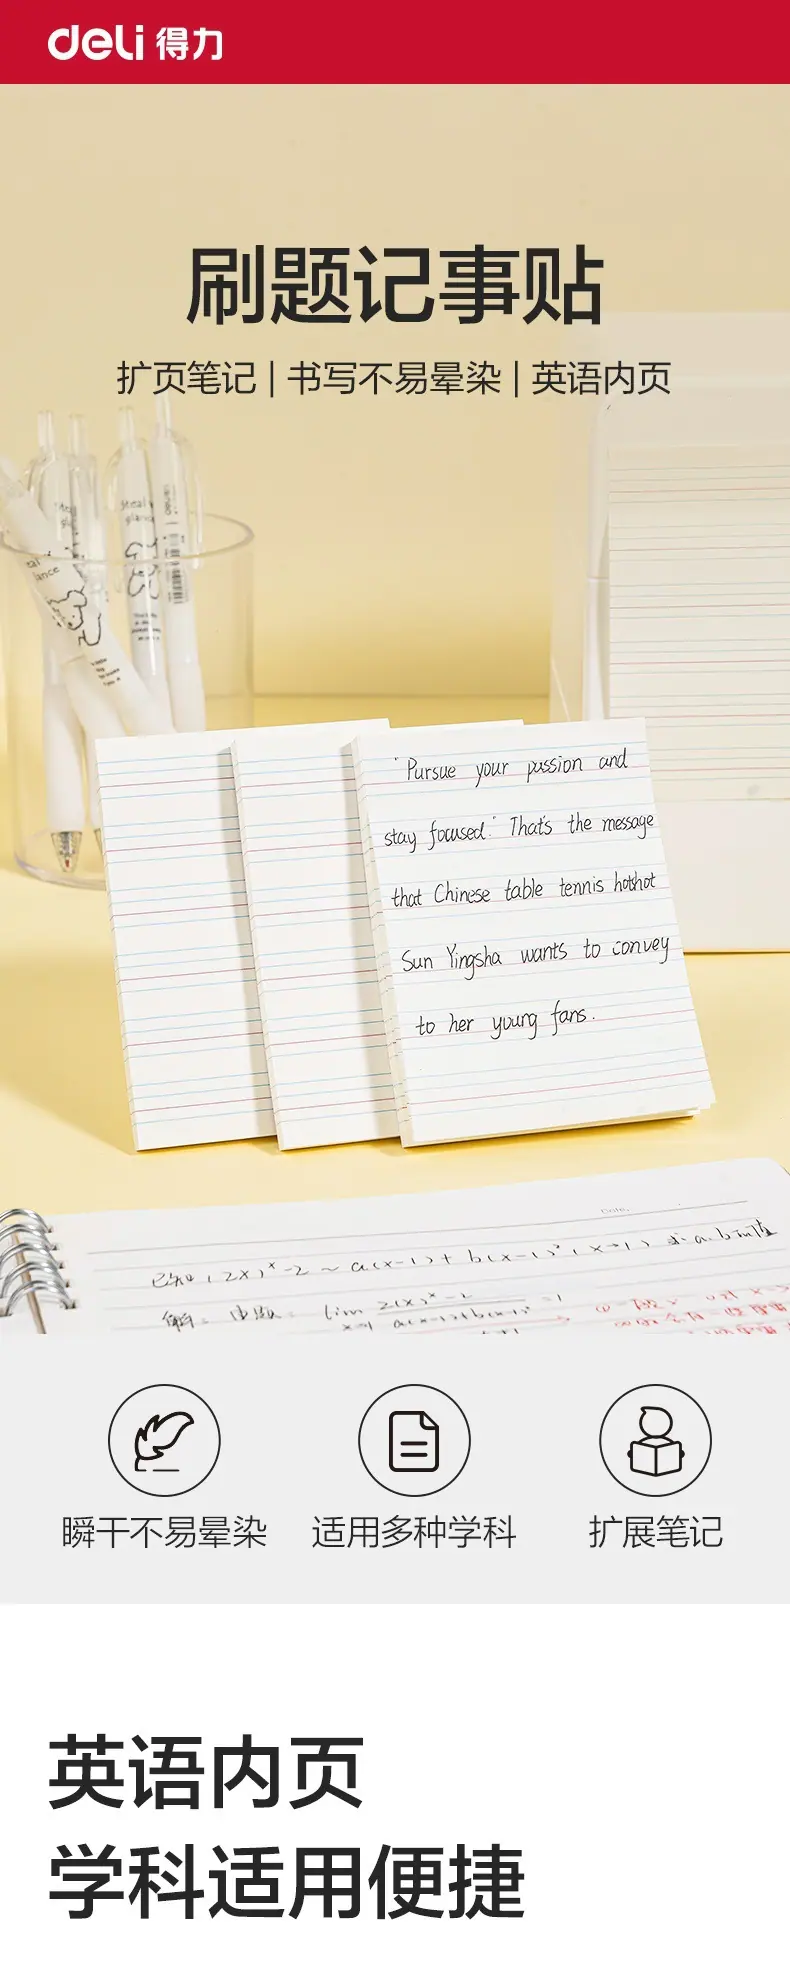 deli 得力
刷题记事贴
扩页笔记 | 书写不易晕染 | 英语内页
"Pursue your passion and
stay focused." That's the message
that Chinese table tennis hotshot
Sun Yingsha wants to convey
to her young fans.
Date.
瞬干不易晕染
适用多种学科
扩展笔记
英语内页
学科适用便捷